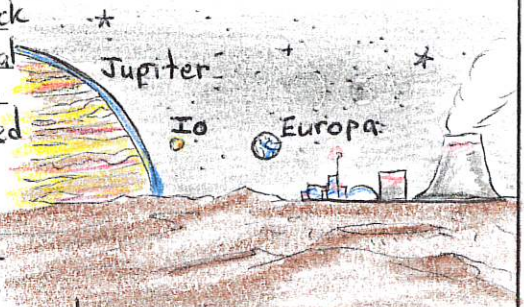 ck
al
Jupiter
ed
Io
Europa